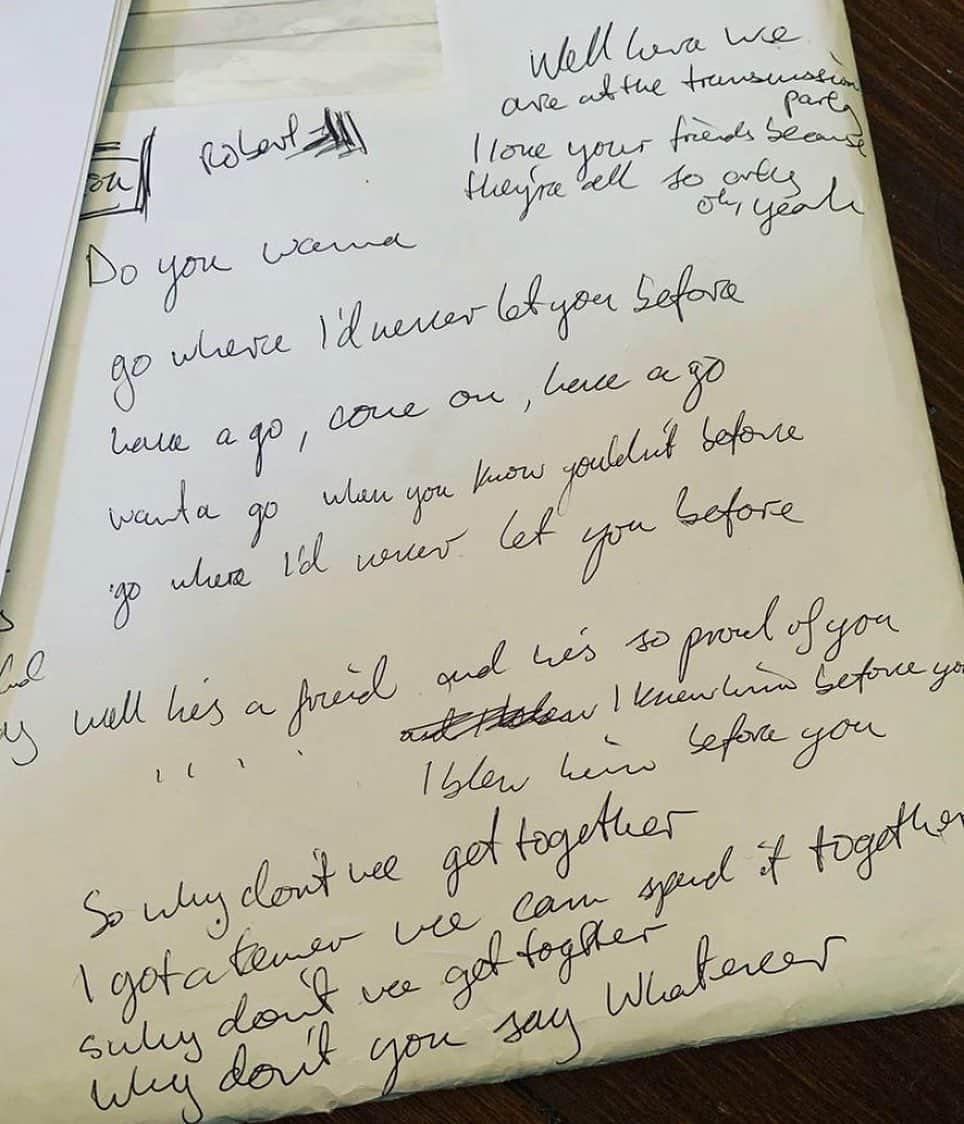 Well here we
are at the transmission
party
I love your friends because
they're all so arty
oh, yeah
ou
Robert
Do you wanna
go where I'd never let you before
have a go, come on, have a go
want a go when you know you couldn't before
go where I'd never let you before
well he's a friend and he's so proud of you
I knew him before yo
I blew him before you
So why don't we get together
I got a tenner we can spend it together
why don't we get together
Why don't you say Whatever